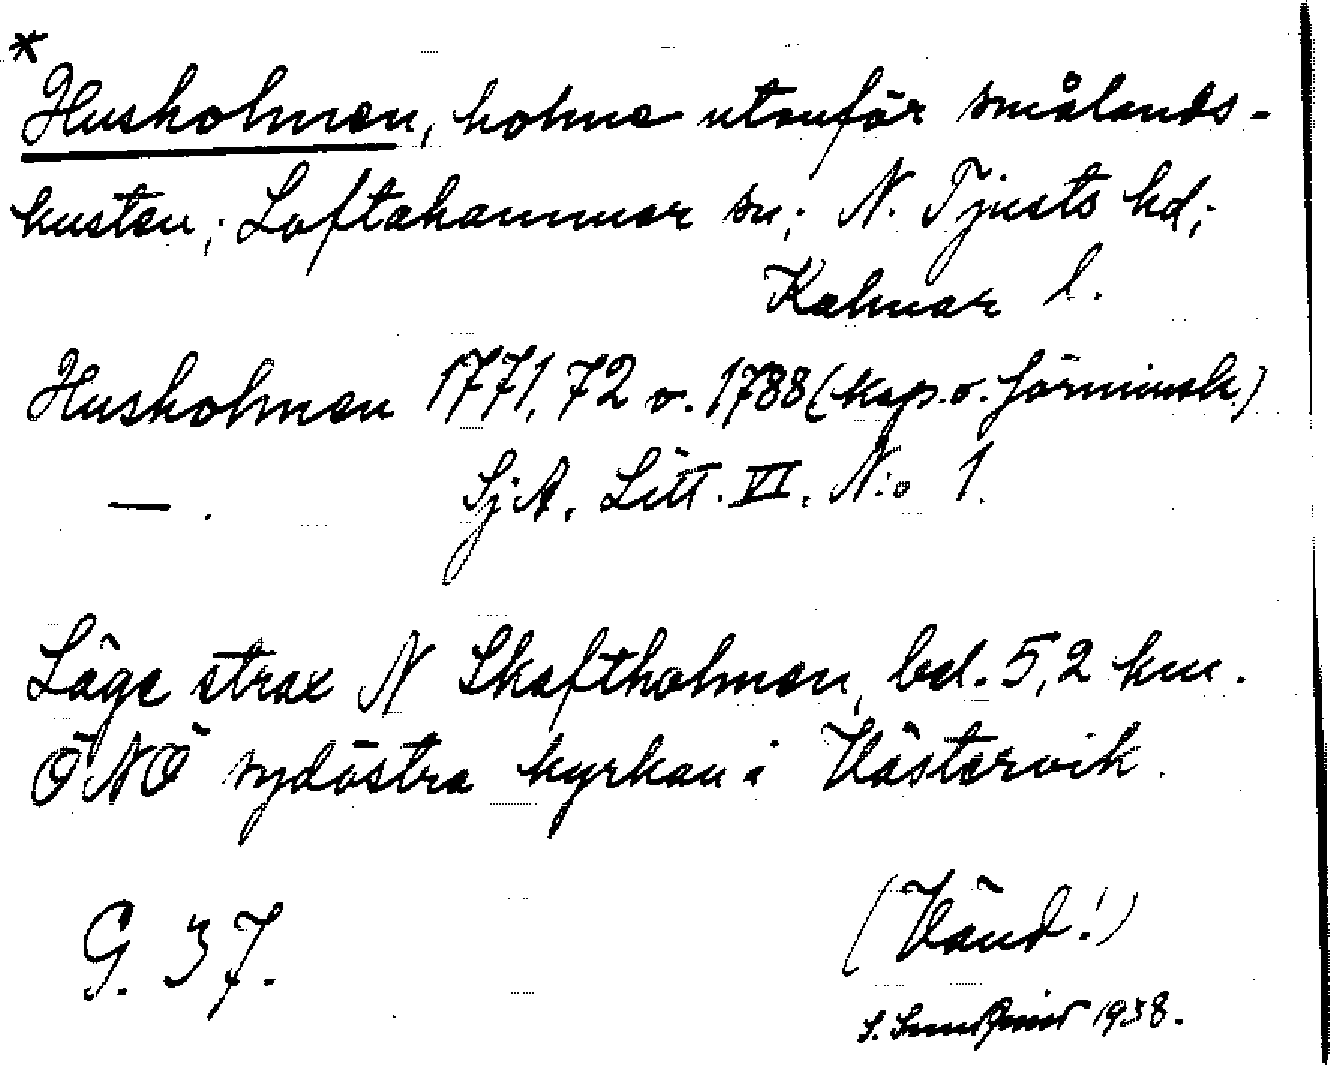 *
Husholmen, holme utanför smålands-
kusten; Loftahammar sn; N. Tjusts hd;
Kalmar l.
Husholmen 1771, 72 o. 1788 (kop. o. förminsk.)
— . Sj. A. Litt. VI. N:o 1.
Läge strax N Skaftholmen, bel. 5,2 km.
ÖNÖ sydöstra kyrkan i Västervik.
G. 37. (Vänd!)
S. 1938.